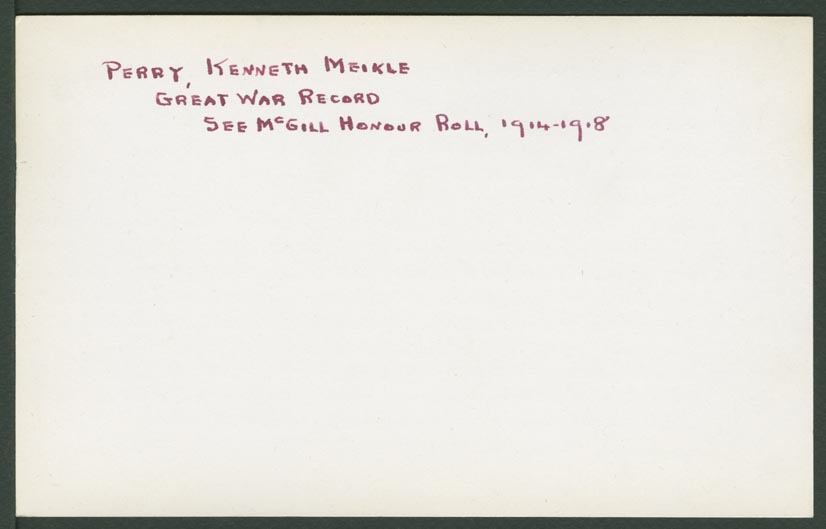 PERRY, KENNETH MEIKLE
GREAT WAR RECORD
SEE McGILL HONOUR ROLL, 1914-1918